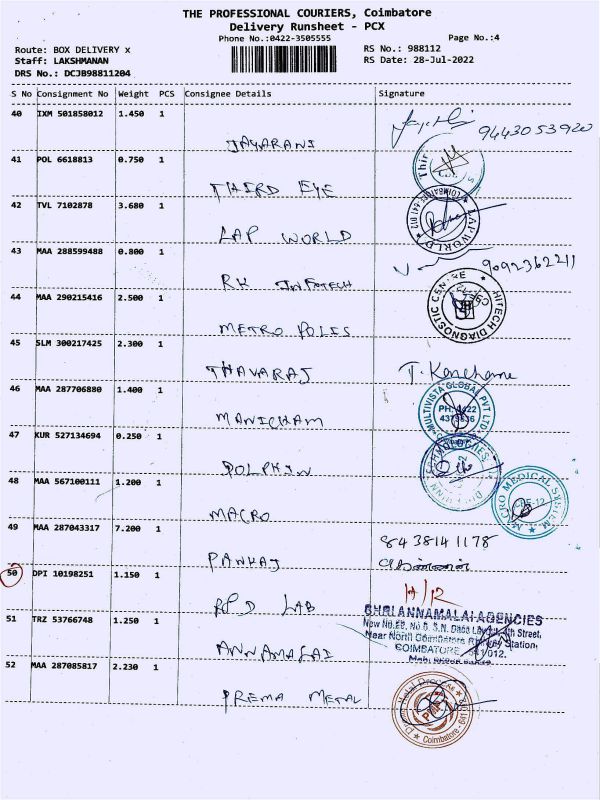 THE PROFESSIONAL COURIERS, Coimbatore
Delivery Runsheet - PCX
Phone No.:0422-3505555
Page No.:4
Route: BOX DELIVERY x
RS No.: 988112
Staff: LAKSHMANAN
RS Date: 28-Jul-2022
DRS No.: DCJB98811204
S No Consignment No Weight PCS Consignee Details Signature
40 IXM 501858012 1.450 1
JAYARANI
9443053920
41 POL 6618813 0.750 1
THIRD EYE
Thir
42 TVL 7102878 3.680 1
LAP WORLD
LAP WORLD
43 MAA 288599488 0.800 1
RK INFOTECH
9092362211
44 MAA 290215416 2.500 1
METRO POLIS
HITECH DIAGNOSTIC CENTRE
45 SLM 300217425 2.300 1
THAVARAJ
46 MAA 287706880 1.400 1
MANICHAM
MULTIVISTA GLOBAL PVT LTD
PH: 0422
47 KUR 527134694 0.250 1
DOLPHIN
48 MAA 567100111 1.200 1
MACRO
49 MAA 287043317 7.200 1
PANKAJ
8438141178
50 DPI 10198251 1.150 1
RPD LAB
51 TRZ 53766748 1.250 1
ANNAMALAI
SHRI ANNAMALAI AGENCIES
4th Street,
Near North Coimbatore Railway Station,
COIMBATORE
52 MAA 287085817 2.230 1
PREMA METAL
Coimbatore